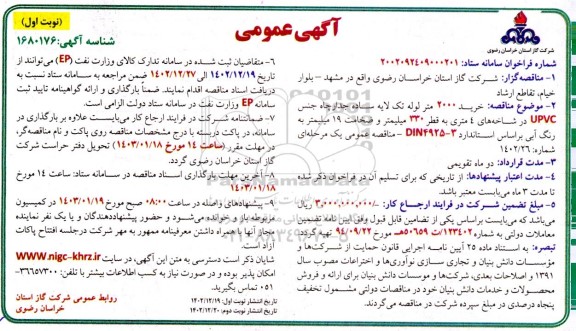 آگهی عمومی
(نوبت اول)
شناسه آگهی: ۱۶۸۰۱۷۶
شرکت گاز استان خراسان رضوی
شماره فراخوان سامانه ستاد: ۲۰۰۲۰۹۲۴۰۹۰۰۰۲۰۱
۱- مناقصه‌گزار: شرکت گاز استان خراسان رضوی واقع در مشهد - بلوار
خیام، تقاطع ارشاد
۲- موضوع مناقصه: خرید ۲۰۰۰ متر لوله تک لایه ساده جدارچاه جنس
UPVC در شاخه‌های ۴ متری به قطر ۳۳۰ میلیمتر و ضخامت ۱۹ میلیمتر به
رنگ آبی براساس استاندارد DIN۴۹۲۵-۳ - مناقصه عمومی یک مرحله‌ای
شماره: ۱۴۰۲/۲۶
۳- مدت قرارداد: دو ماه تقویمی
۴- مدت اعتبار پیشنهادها: از تاریخی که برای تسلیم آن در فراخوان ذکر شده
تا مدت ۳ ماه می‌بایست معتبر باشد.
۵- مبلغ تضمین شرکت در فرایند ارجاع کار: ۳,۰۰۰,۰۰۰,۰۰۰/- ریال
می‌باشد که می‌بایست براساس یکی از تضامین قابل قبول وفق آیین نامه تضمین
معاملات دولتی به شماره ۱۲۳۴۰۲/ت ۵۰۶۵۹هـ مورخ ۹۴/۰۹/۲۲ تهیه گردد.
تبصره: به استناد ماده ۲۵ آیین نامه اجرایی قانون حمایت از شرکت‌ها و
مؤسسات دانش بنیان و تجاری سازی نوآوری‌ها و اختراعات مصوب سال
۱۳۹۱ و اصلاحات بعدی، شرکت‌ها و موسسات دانش بنیان برای ارائه و فروش
محصولات و خدمات دانش بنیان خود در مناقصات دولتی مشمول تخفیف
پنجاه درصدی در مبلغ سپرده شرکت در مناقصه می‌گردند.
۶- متقاضیان ثبت شده در سامانه تدارک کالای وزارت نفت (EP) می‌توانند از
تاریخ ۱۴۰۲/۱۲/۱۹ الی ۱۴۰۲/۱۲/۲۷ ضمن مراجعه به سامانه ستاد نسبت به
دریافت اسناد مناقصه اقدام نمایند. ضمناً بارگذاری و ارائه گواهینامه تایید ثبت
سامانه EP وزارت نفت در سامانه ستاد دولت الزامی است.
۷- ضمانتنامه شرکت در فرایند ارجاع کار می‌بایست علاوه بر بارگذاری در
سامانه، در پاکت دربسته با درج مشخصات مناقصه روی پاکت و نام مناقصه‌گر،
در مهلت مقرر (ساعت ۱۴ مورخ ۱۴۰۳/۰۱/۱۸) تحویل دفتر حراست شرکت
گاز استان خراسان رضوی گردد.
۸- آخرین مهلت بارگذاری اسناد مناقصه در سامانه ستاد: ساعت ۱۴ مورخ
۱۴۰۳/۰۱/۱۸
۹- پیشنهادهای واصله در ساعت ۰۸:۰۰ صبح مورخ ۱۴۰۳/۰۱/۱۹ در کمیسیون
مربوطه باز و خوانده می‌شود و حضور پیشنهاددهندگان و یا یک نفر نماینده
مجاز آنها با همراه داشتن معرفینامه ممهور به مهر شرکت درجلسه افتتاح پاکات
آزاد است.
شایان ذکر است دسترسی به متن این آگهی، در سایت www.nigc-khrz.ir
امکان پذیر بوده و در صورت نیاز به کسب اطلاعات بیشتر با تلفن: ۳۶۶۵۷۳۰۰-
۰۵۱ تماس بگیرید.
تاریخ انتشار نوبت اول: ۱۴۰۲/۱۲/۱۹
تاریخ انتشار نوبت دوم: ۱۴۰۲/۱۲/۲۰
روابط عمومی شرکت گاز استان
خراسان رضوی